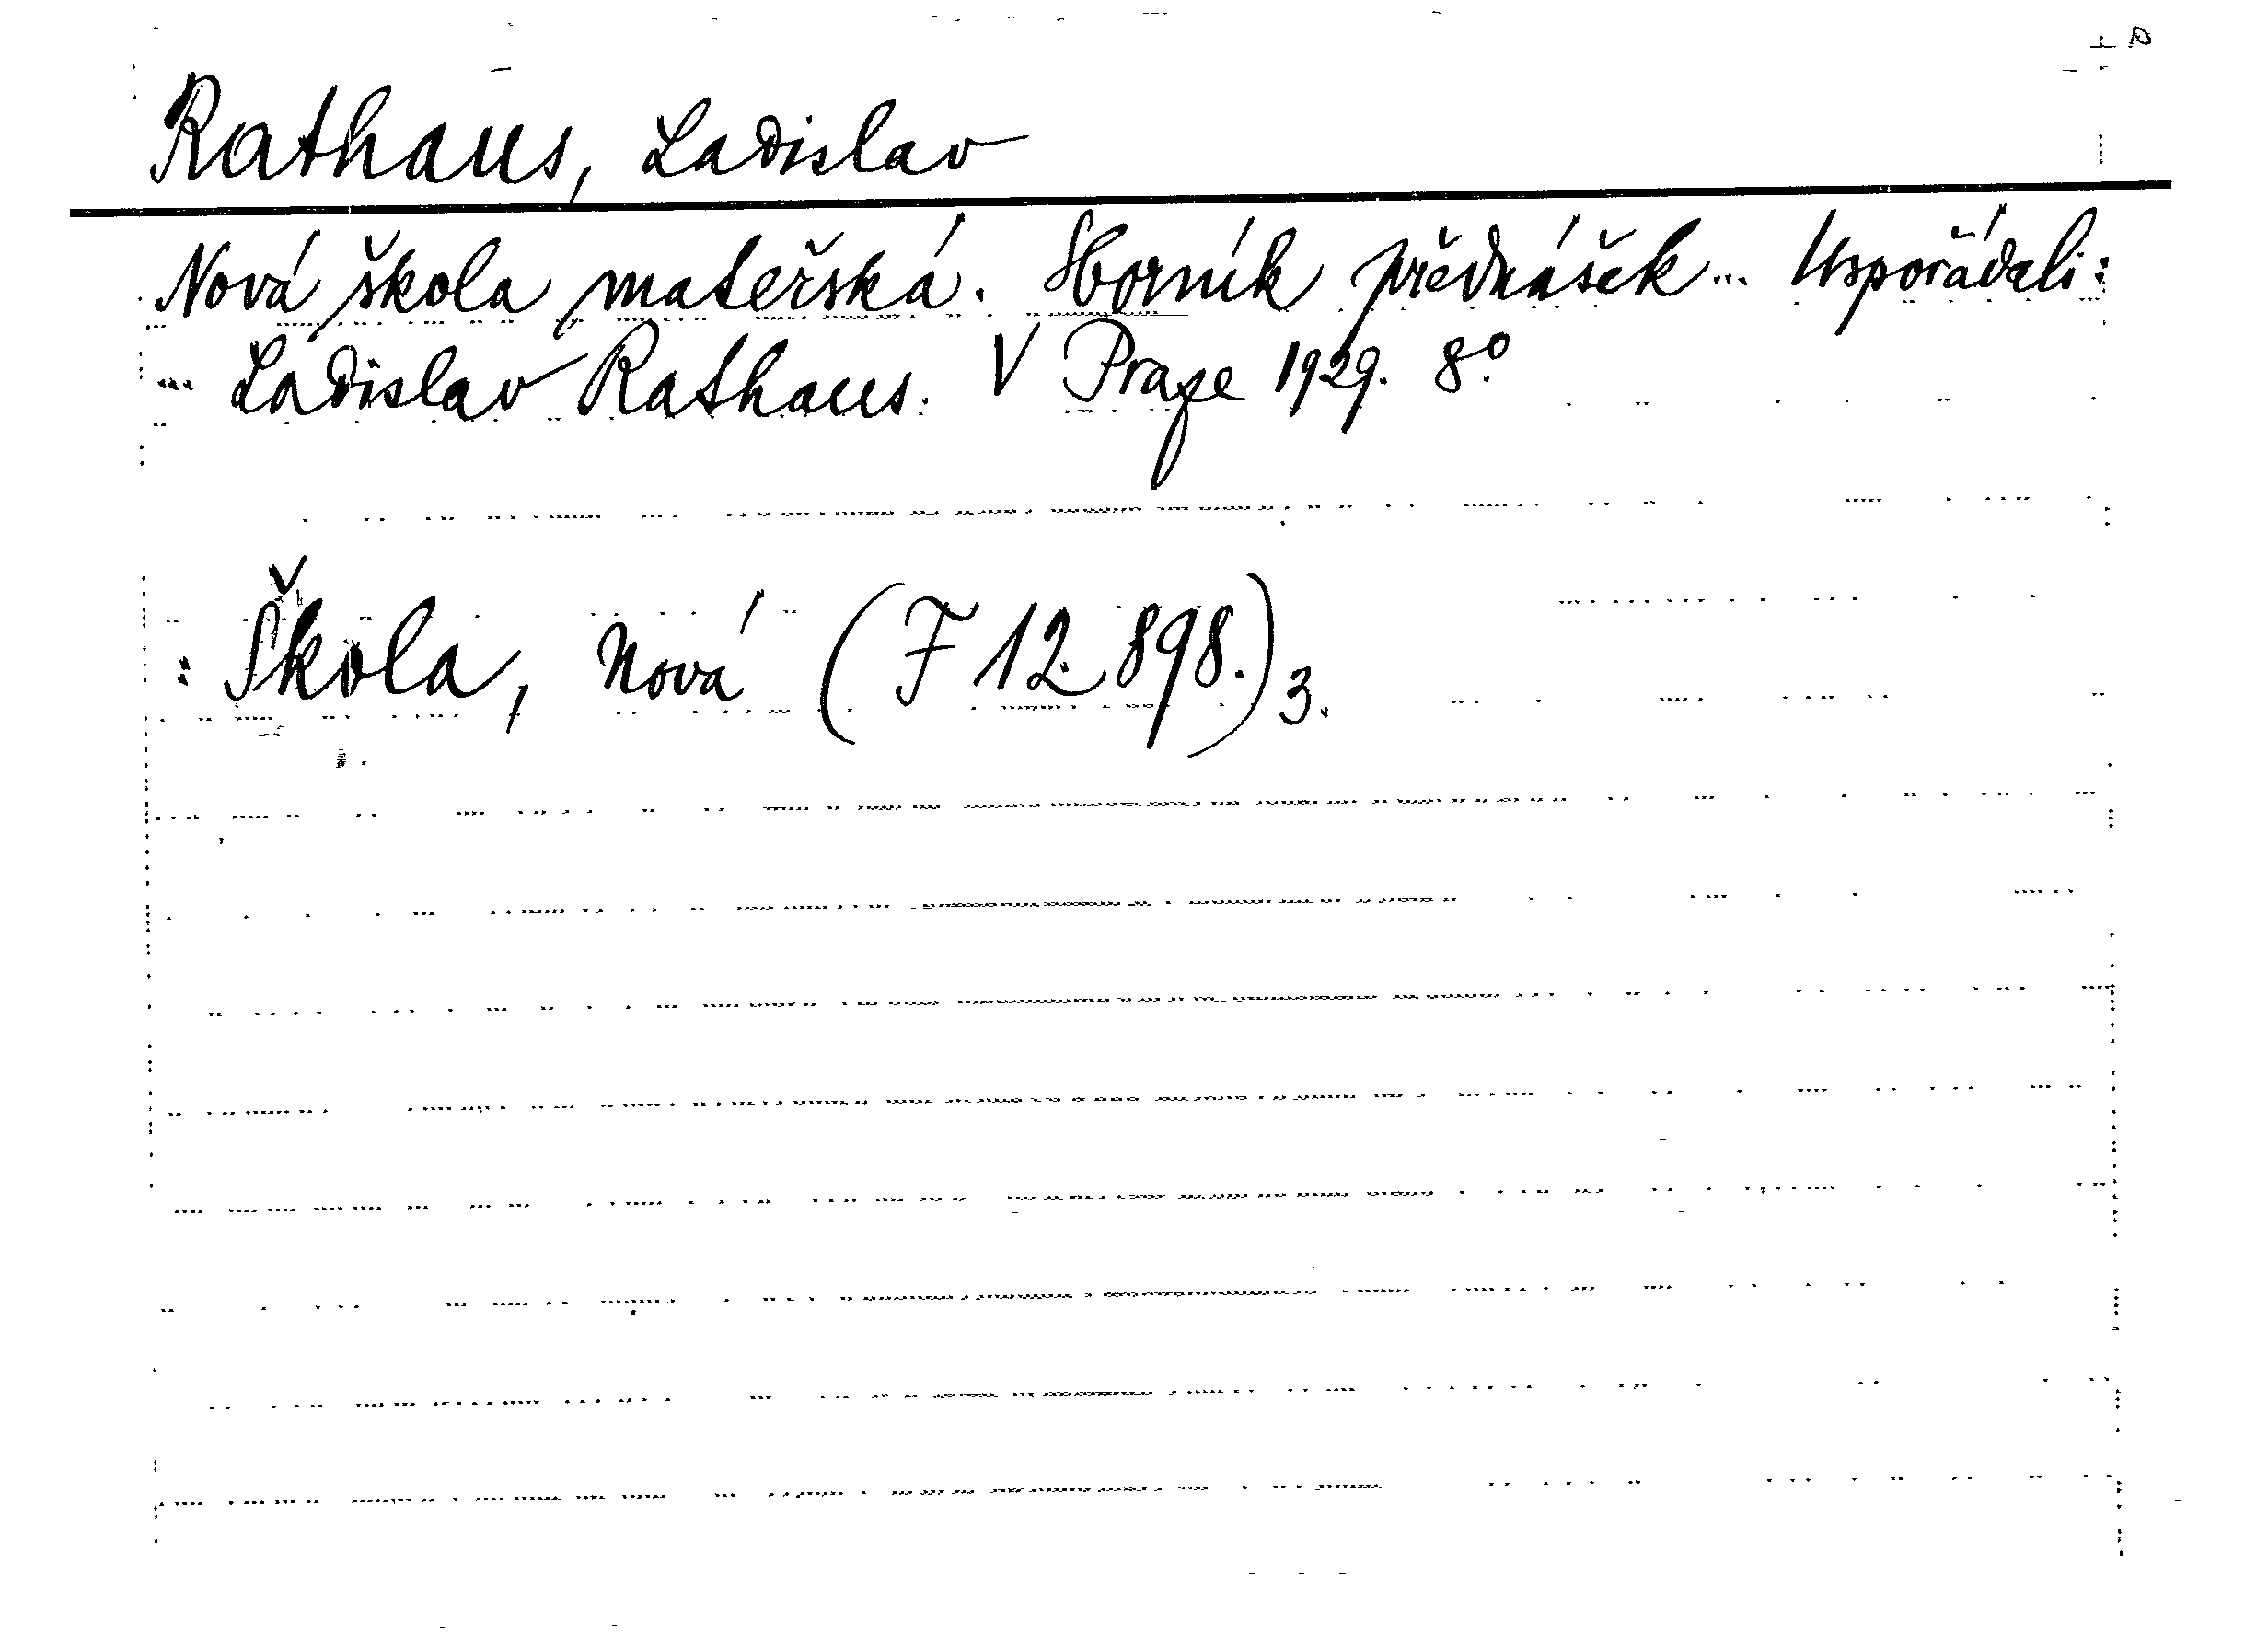 Rathaus, Ladislav
Nová škola mateřská. Sborník přednášek... Uspořádali:
... Ladislav Rathaus. V Praze 1929. 8°.
: Škola, Nová (F 12.898.) 3.